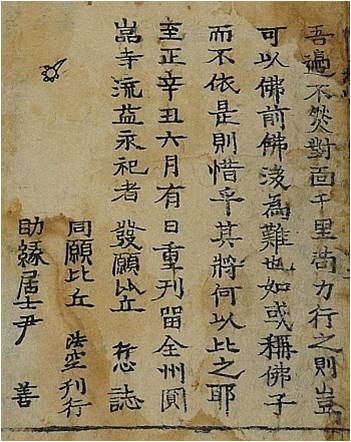 吾過不然對面千里苟力行之則豈
可以佛前佛後為難也如或稱佛子
而不依是則惜乎其將何以比之耶
至正辛丑六月有日重刊留全州圓
嵓寺流益永祀者 發願比丘 志
同願比丘 法空刊行
助緣居士尹 善